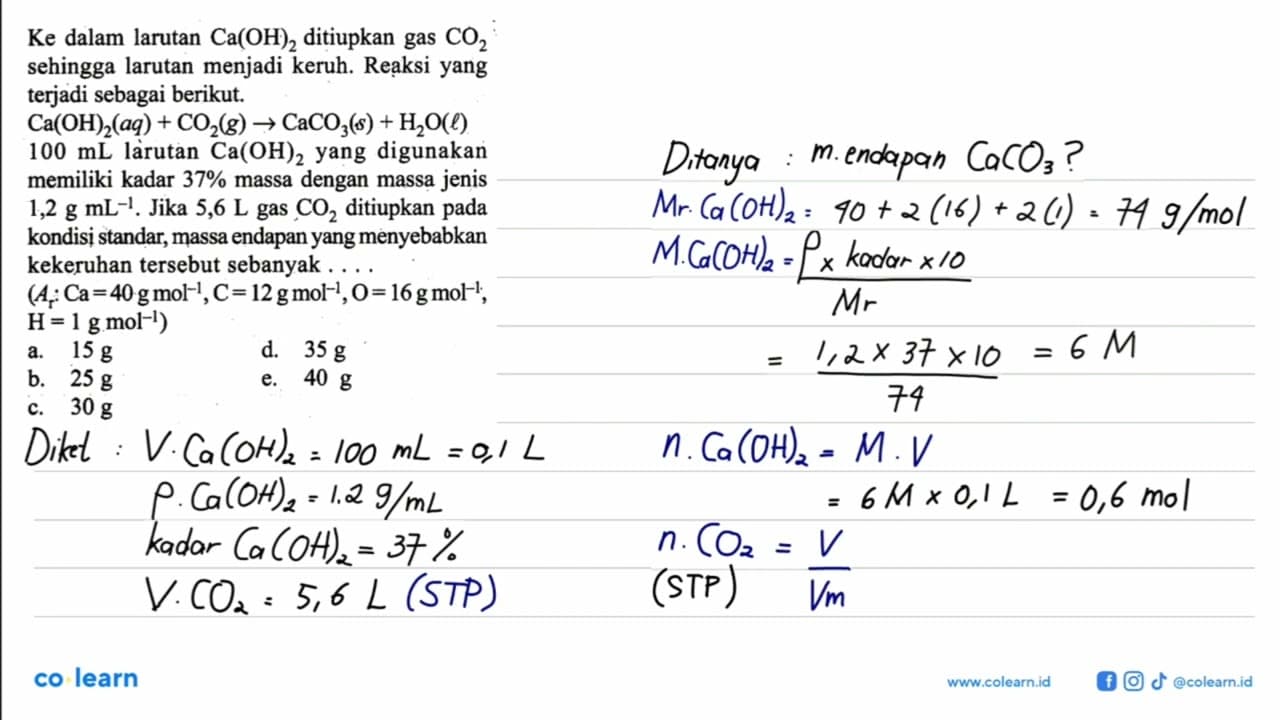 Ke dalam larutan Ca(OH)₂ ditiupkan gas CO₂
sehingga larutan menjadi keruh. Reaksi yang
terjadi sebagai berikut.
Ca(OH)₂(aq) + CO₂(g) → CaCO₃(s) + H₂O(ℓ)
100 mL larutan Ca(OH)₂ yang digunakan
memiliki kadar 37% massa dengan massa jenis
1,2 g mL⁻¹. Jika 5,6 L gas CO₂ ditiupkan pada
kondisi standar, massa endapan yang menyebabkan
kekeruhan tersebut sebanyak . . . .
(Aᵣ: Ca = 40 g mol⁻¹, C = 12 g mol⁻¹, O = 16 g mol⁻¹,
H = 1 g mol⁻¹)
a. 15 g d. 35 g
b. 25 g e. 40 g
c. 30 g
Diket : V. Ca(OH)₂ = 100 mL = 0,1 L
ρ. Ca(OH)₂ = 1.2 g/mL
kadar Ca(OH)₂ = 37 %
V. CO₂ = 5,6 L (STP)
Ditanya : m. endapan CaCO₃ ?
Mr. Ca(OH)₂ = 40 + 2 (16) + 2 (1) = 74 g/mol
M. Ca(OH)₂ = ρ x kadar x 10
Mr
= 1,2 x 37 x 10 = 6 M
74
n. Ca(OH)₂ = M . V
= 6 M x 0,1 L = 0,6 mol
n. CO₂ = V
(STP) Vm
co learn
www.colearn.id @colearn.id